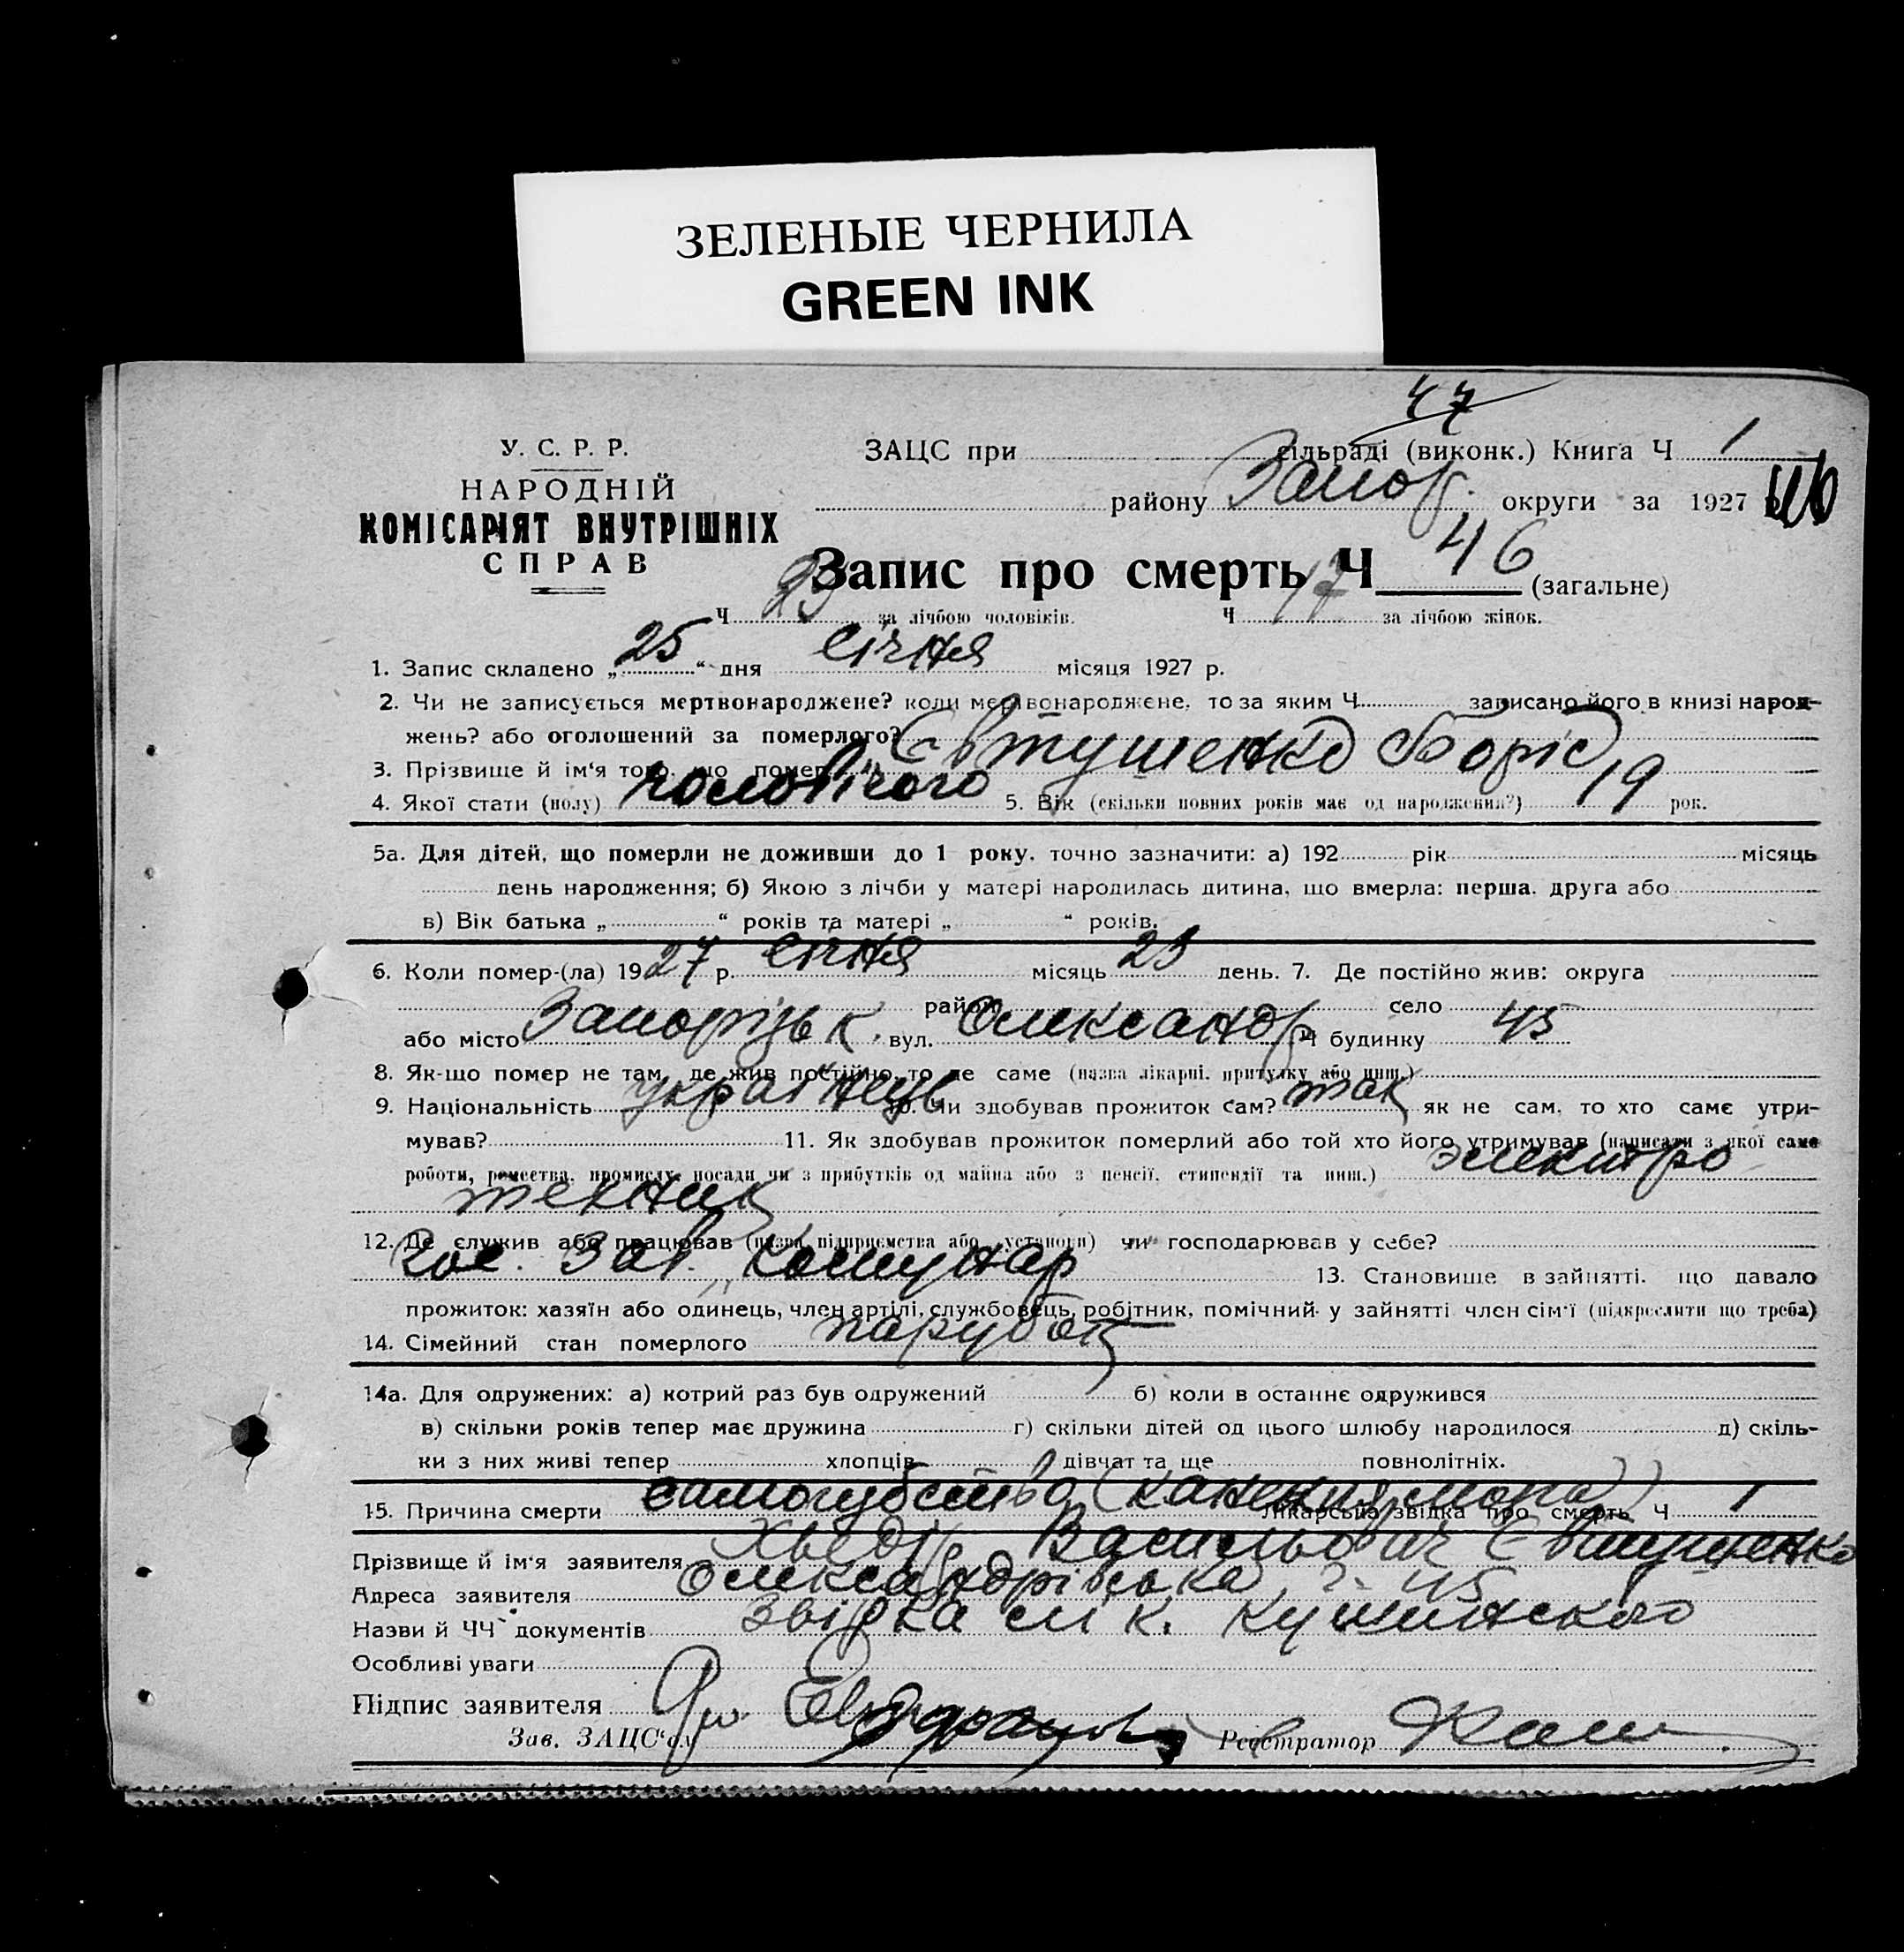 ЗЕЛЕНЫЕ ЧЕРНИЛА
GREEN INK
47
У. С. Р. Р.
НАРОДНІЙ
КОМІСАРІЯТ ВНУТРІШНІХ
СПРАВ
ЗАЦС при сільраді (виконк.) Книга Ч 1
району Запор. округи за 1927 р.
Запис про смерть Ч 46 (загальне)
Ч 29 за лічбою чоловіків. Ч 17 за лічбою жінок.
1. Запис складено „25“ дня січня місяця 1927 р.
2. Чи не записується мертвонароджене? коли мертвонароджене, то за яким Ч записано його в книзі народ-
жень? або оголошений за померлого?
3. Прізвище й ім'я того, що помер Євтушенко Борис
4. Якої стати (полу) чоловічого 5. Вік (скільки повних років має од народження?) 19 рок.
5а. Для дітей, що померли не доживши до 1 року, точно зазначити: а) 192 рік місяць
день народження; б) Якою з лічби у матері народилась дитина, що вмерла: перша, друга або
в) Вік батька „ “ років та матері „ “ років.
6. Коли помер-(ла) 1927 р. січня місяць 23 день. 7. Де постійно жив: округа
район село
або місто Запоріжжя вул. Олександр Ч будинку 45
8. Як-що помер не там, де жив постійно, то де саме (назва лікарні, притулку або инш.)
9. Національність українець 10. Чи здобував прожиток сам? так як не сам, то хто саме утри-
мував? 11. Як здобував прожиток померлий або той хто його утримував (написати з якої саме
роботи, ремества, промислу, посади чи з прибутків од майна або з пенсії, стипендії та инш.) электро
технік
12. Де служив або працював (назва підприємства або установи) чи господарював у себе?
Гос. Зав. „Комунар 13. Становище в зайнятті, що давало
прожиток: хазяїн або одинець, член артілі, службовець, робітник, помічний у зайнятті член сім'ї (підкреслити що треба)
14. Сімейний стан померлого парубок
14а. Для одружених: а) котрий раз був одружений б) коли в останнє одружився
в) скільки років тепер має дружина г) скільки дітей од цього шлюбу народилося д) скіль-
ки з них живі тепер хлопців дівчат та ще повнолітніх.
15. Причина смерти самогубство Лікарська звідка про смерть Ч 1
Прізвище й ім'я заявителя Хведір Васильович Євтушенко
Адреса заявителя Олександрівська, ч. 45
Назви й ЧЧ документів звідка лік. Кушинского
Особливі уваги
Підпис заявителя
Зав. ЗАЦС'ом Реєстратор